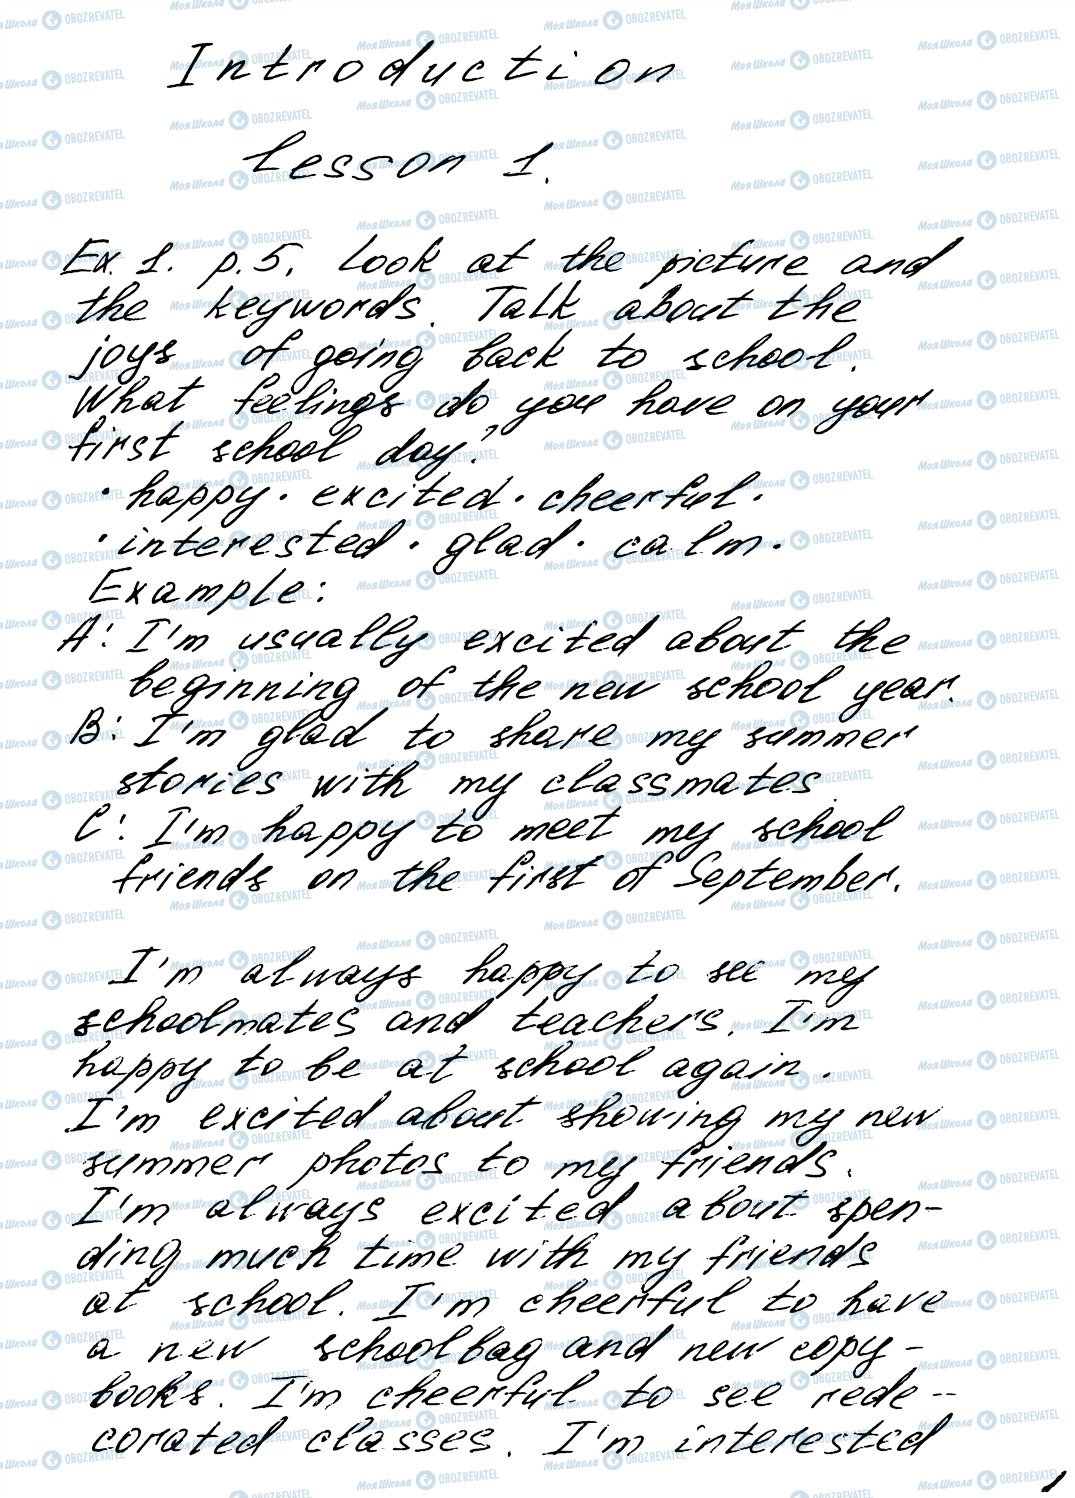 Introduction
Lesson 1.
Ex. 1. p. 5. Look at the picture and
the keywords. Talk about the
joys of going back to school.
What feelings do you have on your
first school day?
· happy · excited · cheerful ·
· interested · glad · calm ·
Example:
A: I'm usually excited about the
beginning of the new school year.
B: I'm glad to share my summer
stories with my classmates
C: I'm happy to meet my school
friends on the first of September.
I'm always happy to see my
schoolmates and teachers. I'm
happy to be at school again.
I'm excited about showing my new
summer photos to my friends.
I'm always excited about spen-
ding much time with my friends
at school. I'm cheerful to have
a new schoolbag and new copy-
books. I'm cheerful to see rede-
corated classes. I'm interested
МояШкола OBOZREVATEL